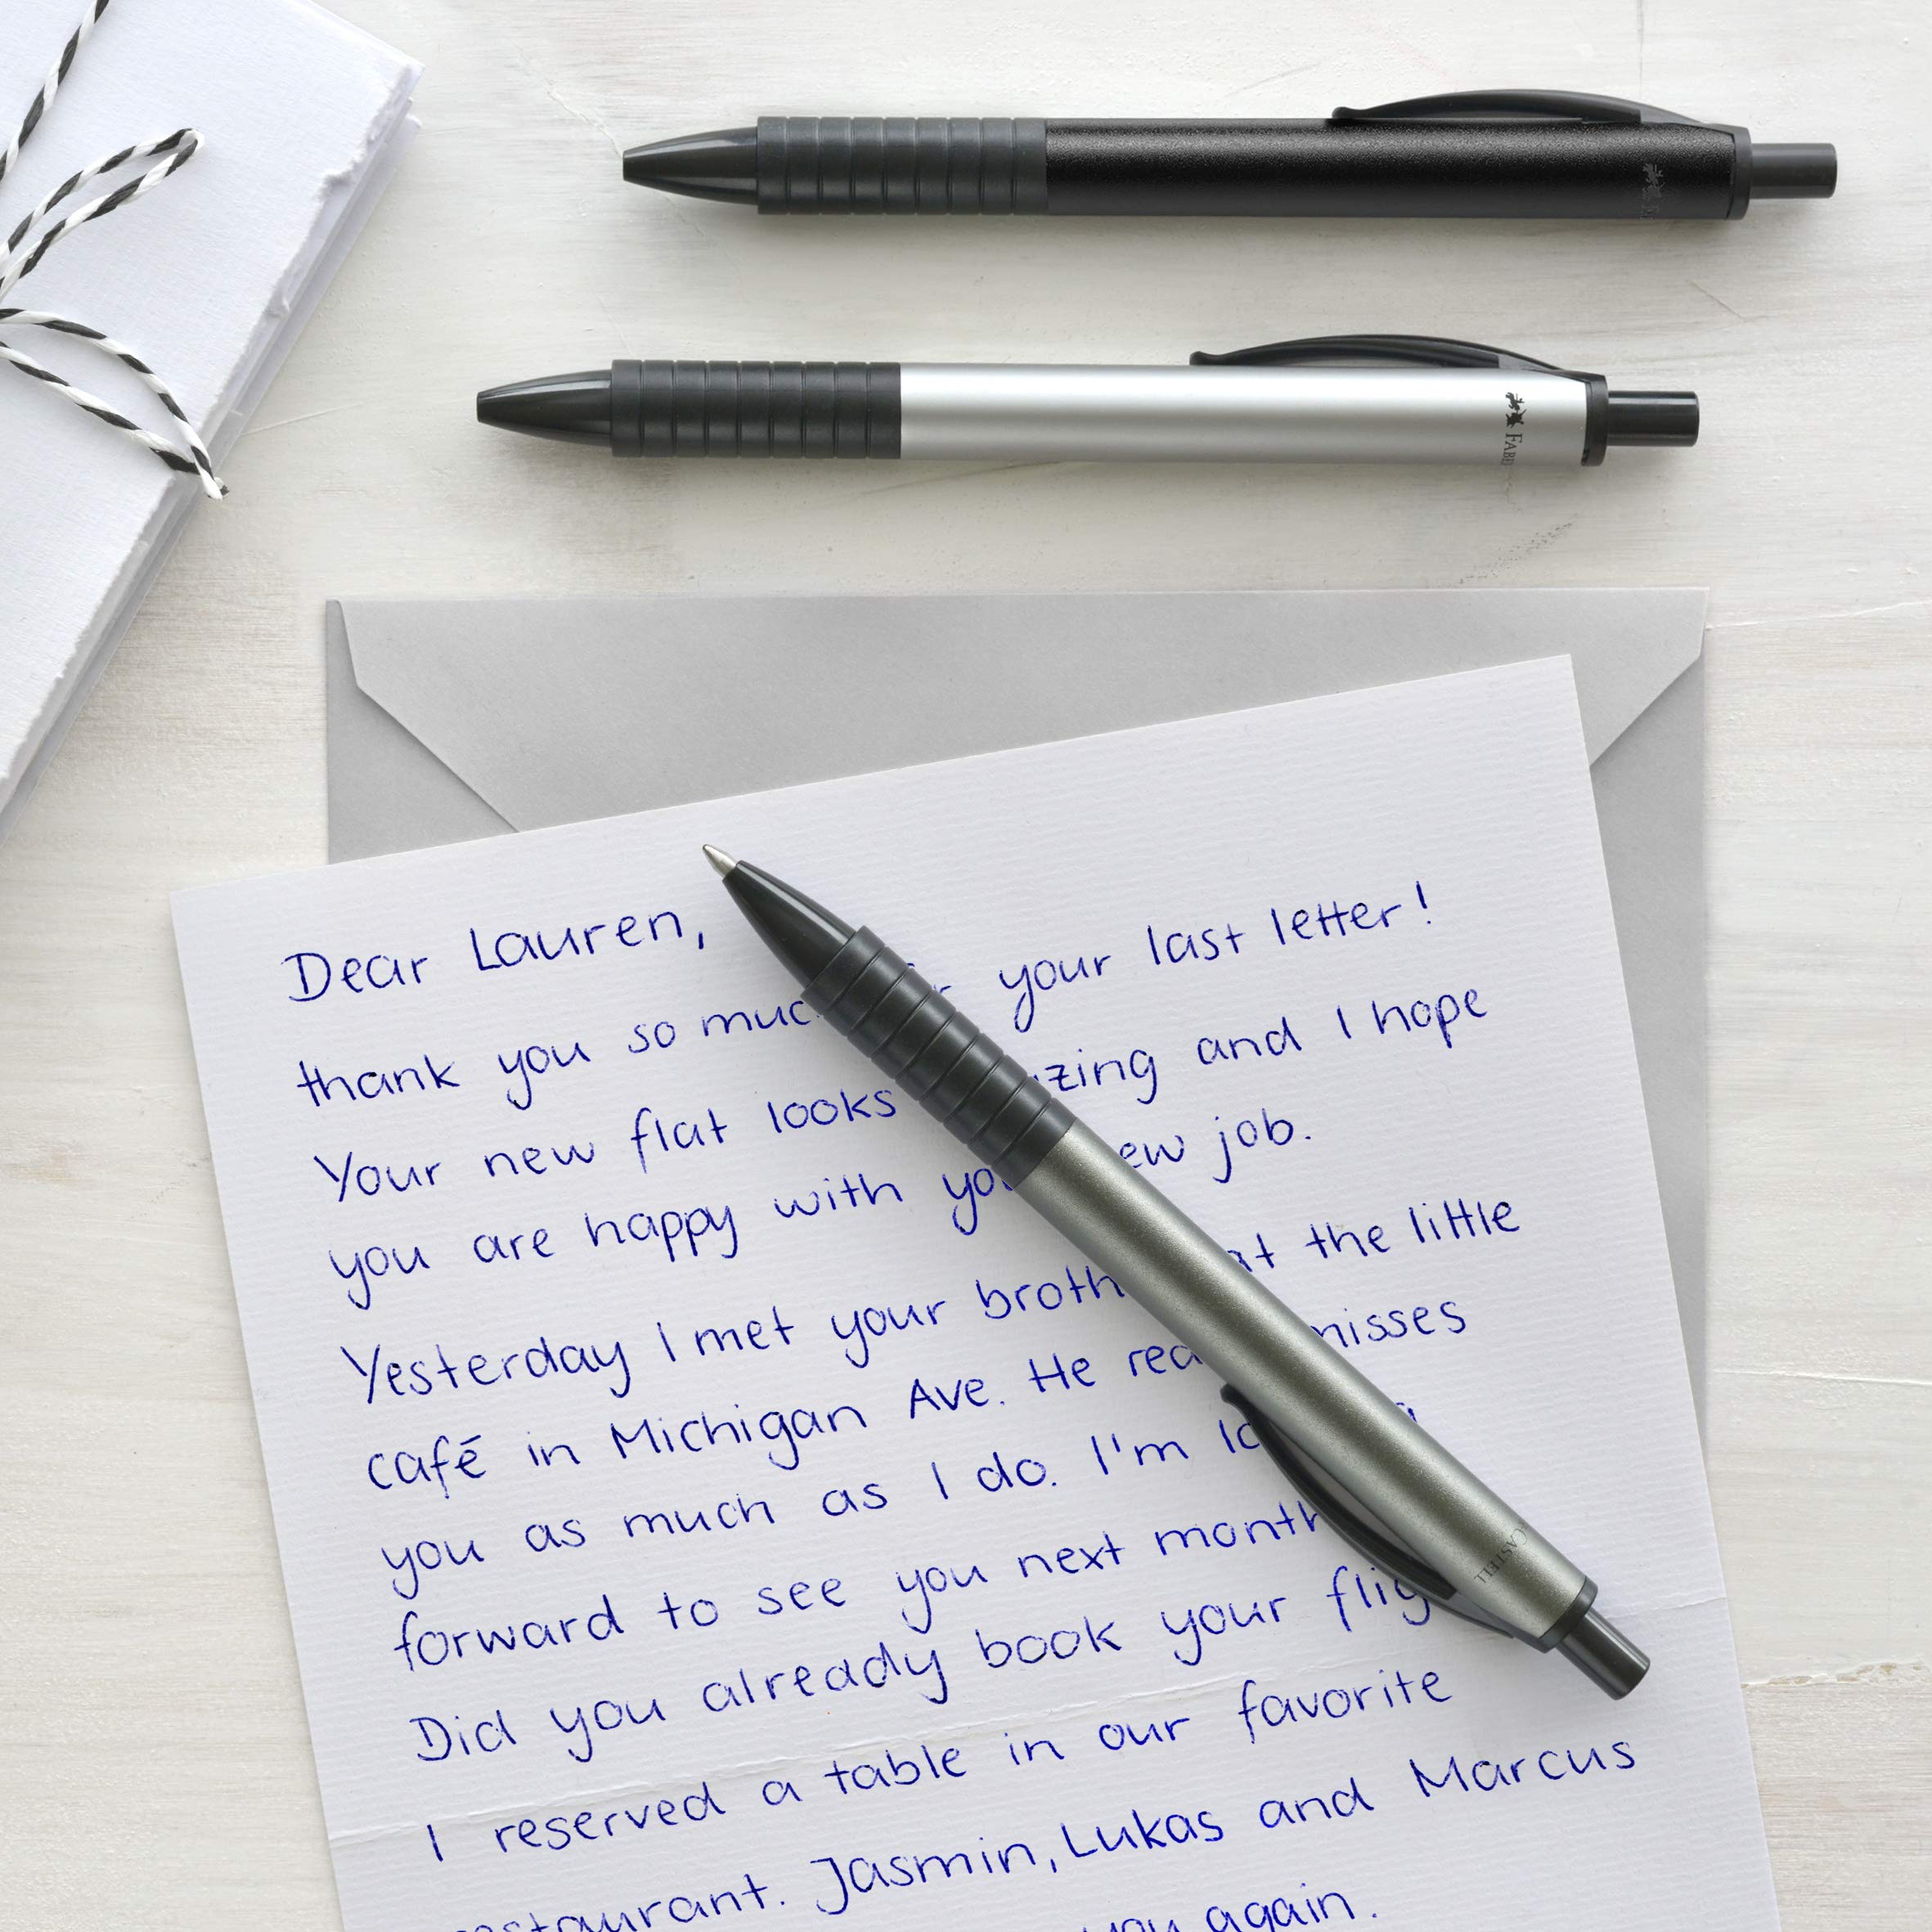 FABER
Dear Lauren,
thank you so much your last letter!
Your new flat looks and I hope
you are happy with job.
Yesterday I met your at the little
café in Michigan Ave. He misses
you as much as I do. I'm
forward to see you next month
Did you already book your
I reserved a table in our favorite
restaurant. Jasmin, Lukas and Marcus
you again.
CASTELL